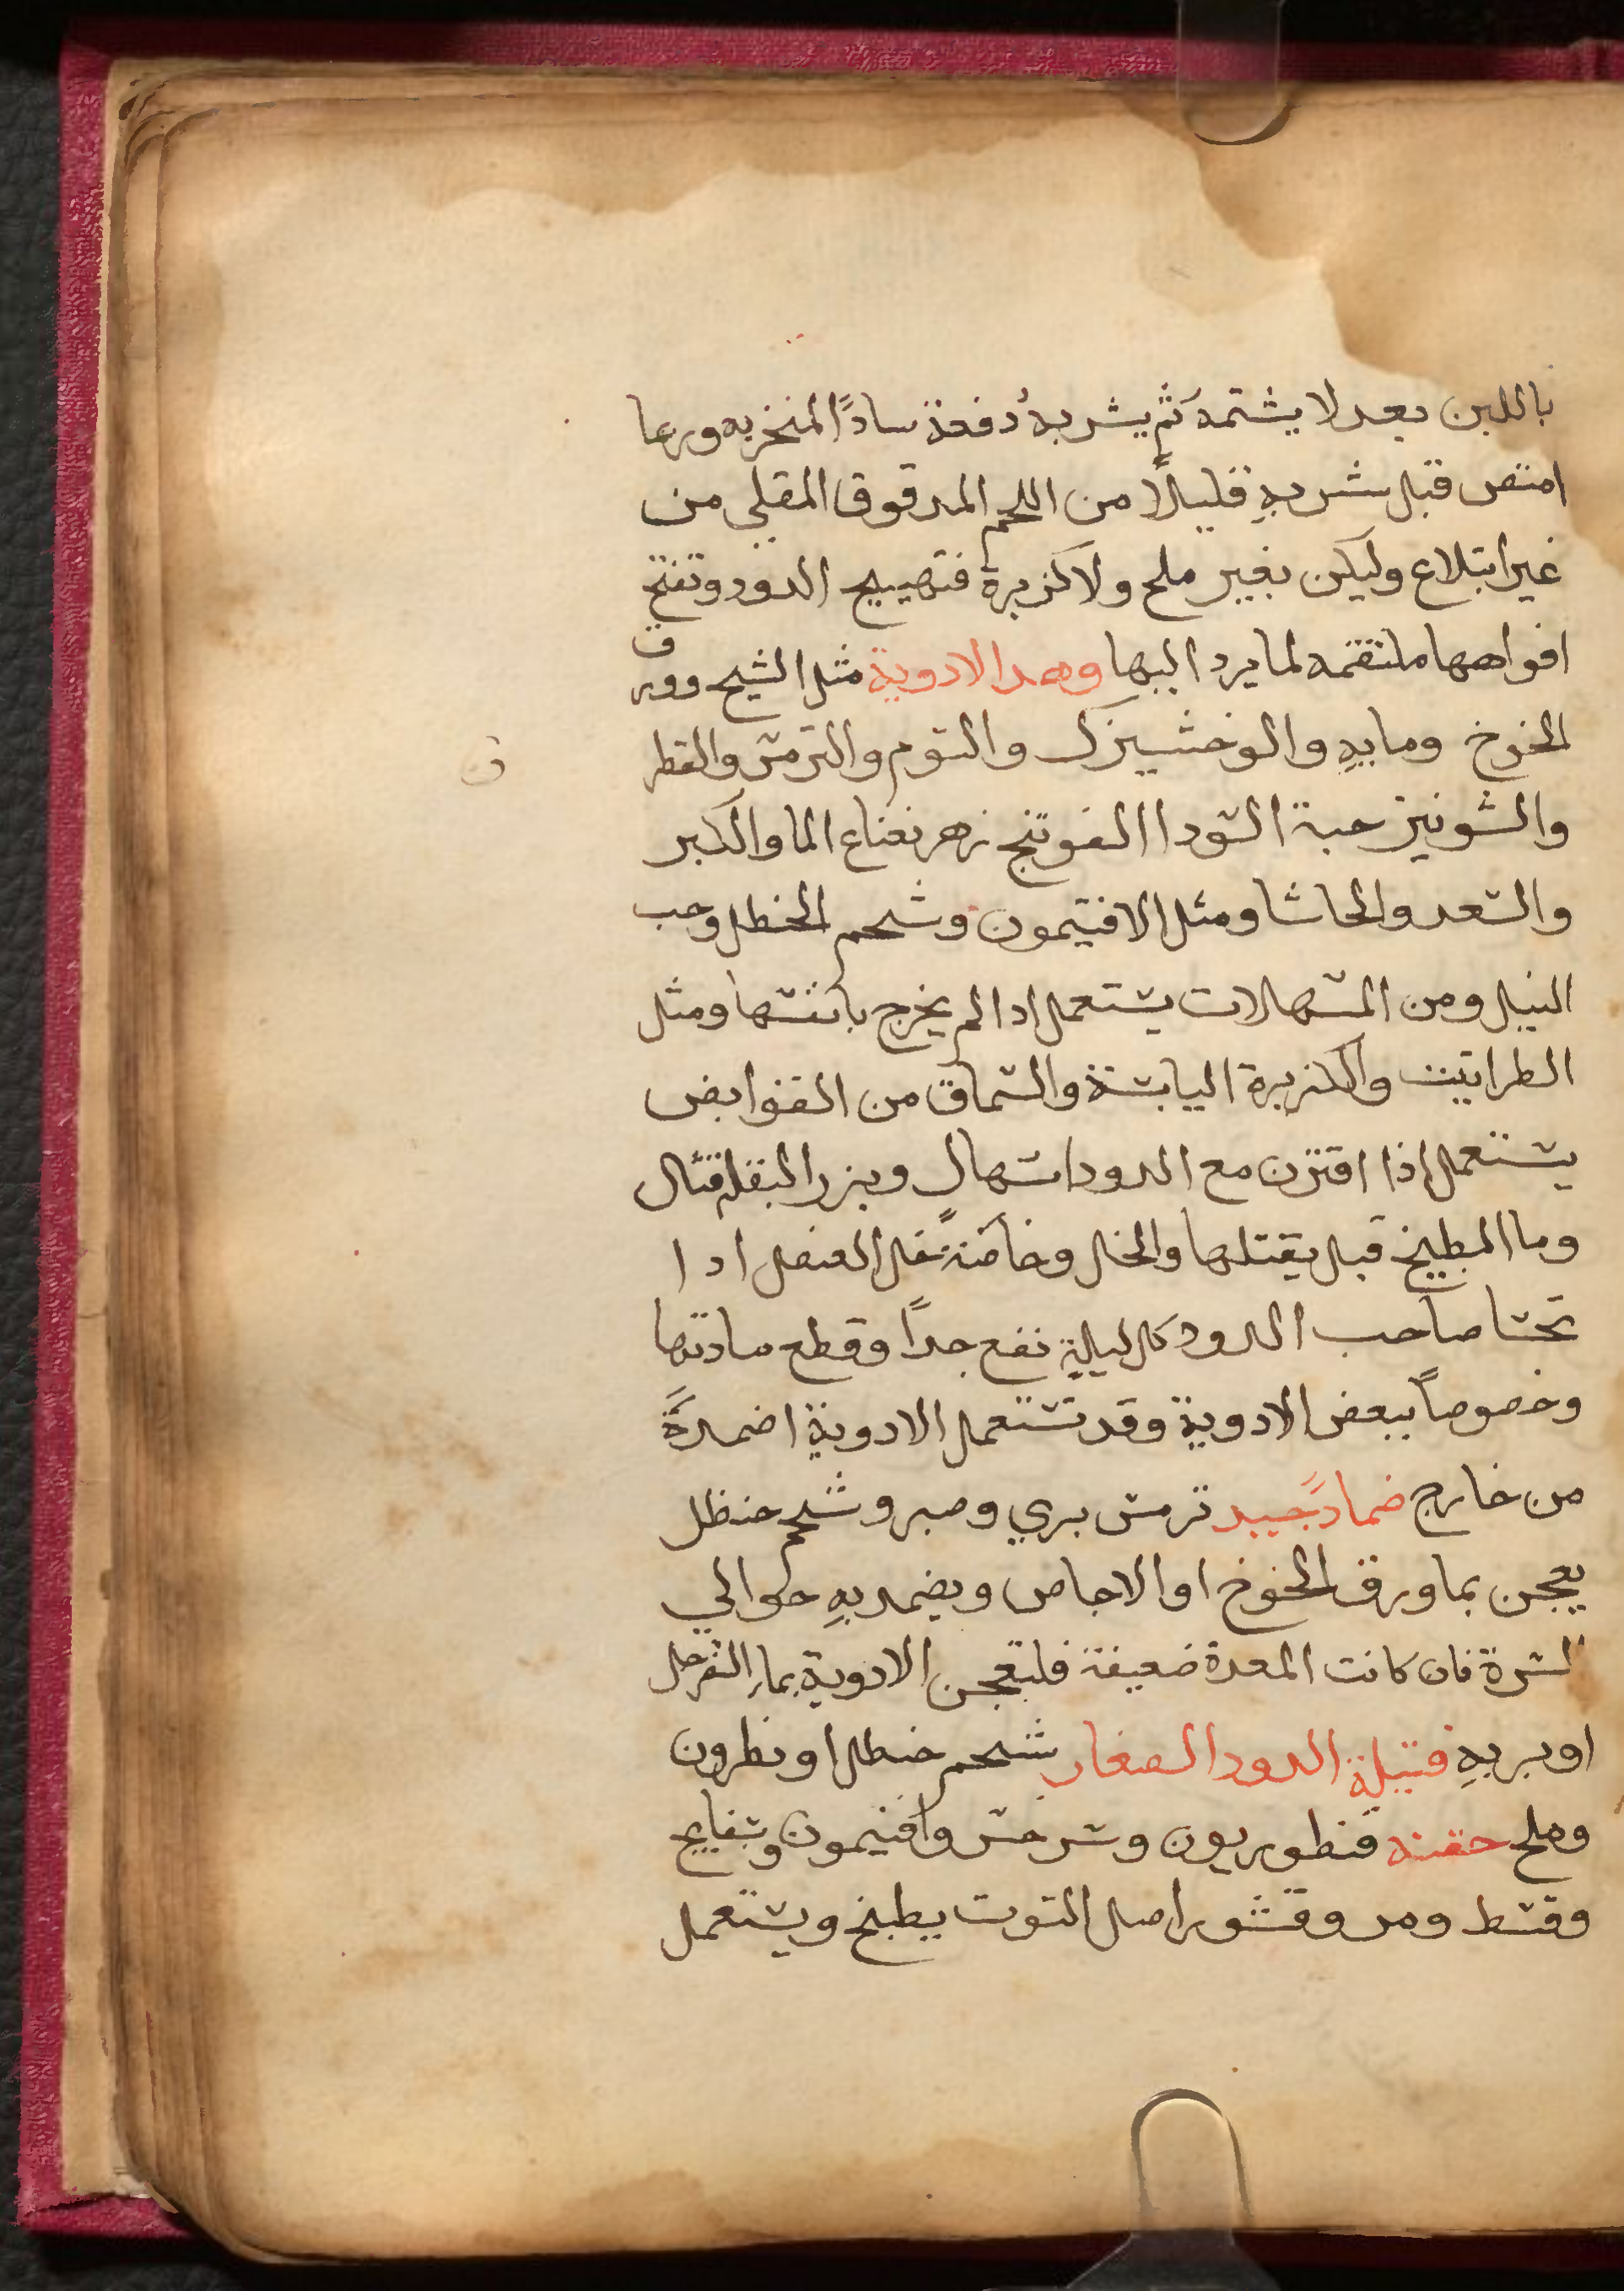 باللبن بعد لا يشتمه ثم يشربهُ دفعة سادًا المنخريه وربما
امتص قبل شربهِ قليلًا من اللحم المدقوق المقلي من
غير ابتلاع وليكن بغير ملح ولا كزبرة فتهييج الدود وتفتح
افواهها ملتقمه لما يرد اليها وهدا الادوية مثل الشيح وورق
الخوخ ومابهِ والوخشيزك والتوم والترمس والقطر
والشونيز حبة السودا الفوتنج زهر نعناع الما والكبر
والسعد والحاشا ومثل الافتيمون وشحم الحنطل وحب
النيل ومن المسهلات يستعمل ادا لم يخرج بانفسها ومثل
الطراتيت والكزبرة اليابسة والسماق من القوابض
يستعمل اذا اقترن مع الدود اسهال وبزر البقلة قتال
وما البطيخ قبل يقتلها والخل وخاصةً خل العنصل ادا
تحسا صاحب الدود كل ليلةٍ نفع جداً وقطع مادتها
وخصوصاً ببعض الادوية وقد تستعمل الادوية اضمدةً
من خارج ضمادً جيد ترمس بري وصبر وشحم حنظل
يعجن بما ورق الخوخ او الاجاص ويضمد بهِ حوالي
السرة فان كانت المعدة ضعيفة فليعجن الادوية بماء السفرجل
او بربهِ فتيلة الدود الصغار شحم حنطل او نطرون
وملح حقنه قنطوريون وسرخس وافتيمون وبسفايج
وقسط ومر وقشور اصل التوت يطبخ ويستعمل